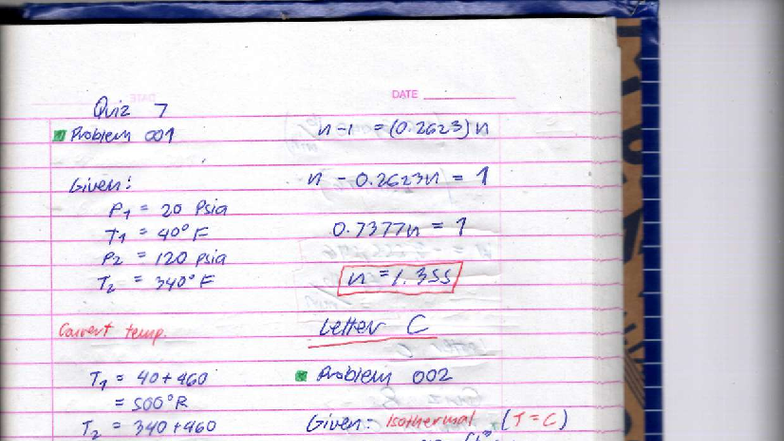 DATE
Quiz 7
Problem 001
Given:
P1 = 20 Psia
T1 = 40°F
P2 = 120 psia
T2 = 340°F
Convert temp.
T1 = 40+460
= 500°R
T2 = 340+460
n-1 = (0.2623)n
n - 0.2623n = 1
0.7377n = 1
n = 1.355
Letter C
Problem 002
Given: isothermal (T=C)